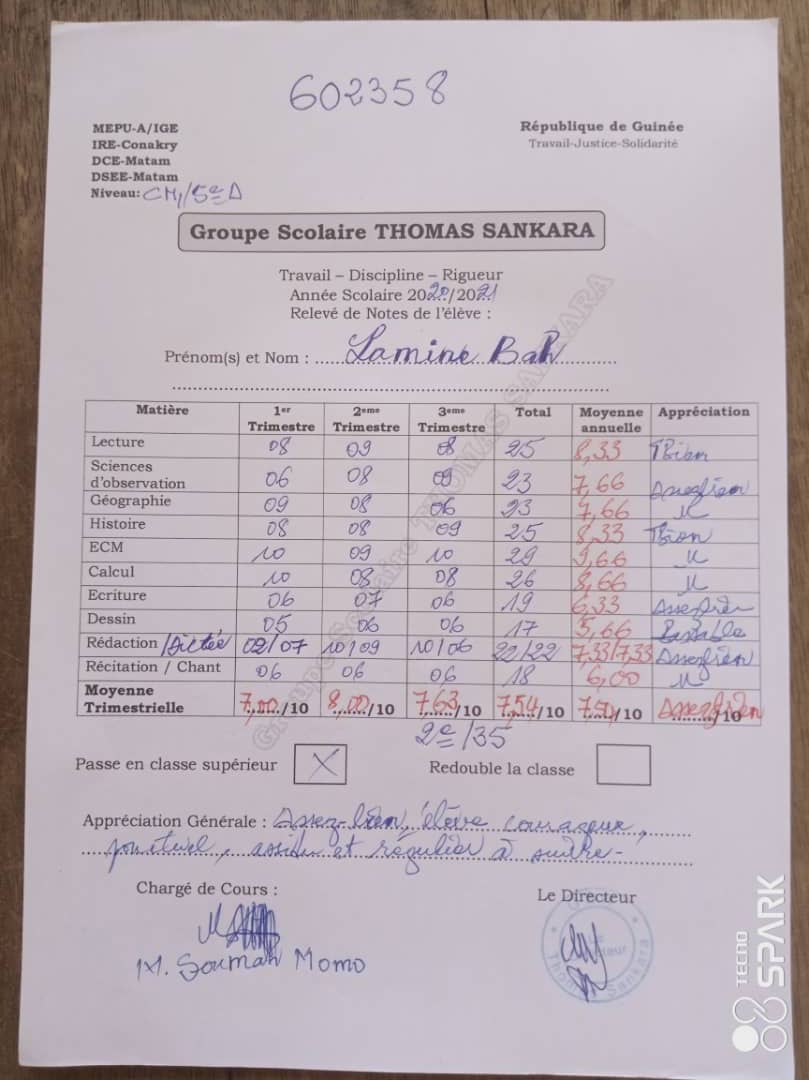 602358
MEPU-A/IGE
IRE-Conakry
DCE-Matam
DSEE-Matam
Niveau: CM1/5e A
République de Guinée
Travail-Justice-Solidarité
Groupe Scolaire THOMAS SANKARA
Travail – Discipline – Rigueur
Année Scolaire 2020/2021
Relevé de Notes de l'élève :
Prénom(s) et Nom : Lamine Bah
Matière 1er Trimestre 2eme Trimestre 3eme Trimestre Total Moyenne annuelle Appréciation
Lecture 08 09 08 25 8,33 TBien
Sciences d'observation 06 08 09 23 7,66 Assez bien
Géographie 09 08 06 23 7,66 //
Histoire 08 08 09 25 8,33 TBien
ECM 10 09 10 29 9,66 //
Calcul 10 08 08 26 8,66 //
Ecriture 06 07 06 19 6,33 Assez bien
Dessin 05 06 06 17 5,66 Passable
Rédaction /Dictée 02/07 10/09 10/06 22/22 7,33/7,33 Assez bien
Récitation / Chant 06 06 06 18 6,00 //
Moyenne Trimestrielle 7,00/10 8,00/10 7,63/10 7,54/10 /10 Assez bien /10
2e/35
Passe en classe supérieur X
Redouble la classe
Appréciation Générale : Assez-bien, élève courageux,
ponctuel, assidu et régulier à suivre-
Chargé de Cours :
Le Directeur
M. Soumah Momo
Le Directeur
Thomas Sankara
Groupe Scolaire THOMAS SANKARA
TECNO
SPARK